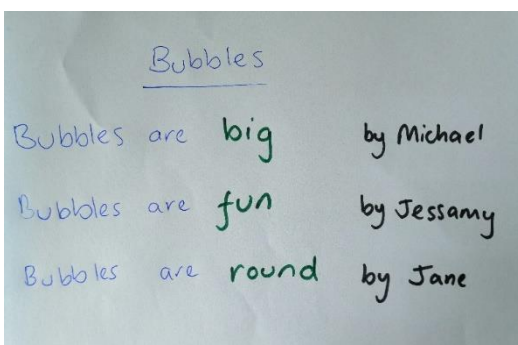 Bubbles
Bubbles are big by Michael
Bubbles are fun by Jessamy
Bubbles are round by Jane